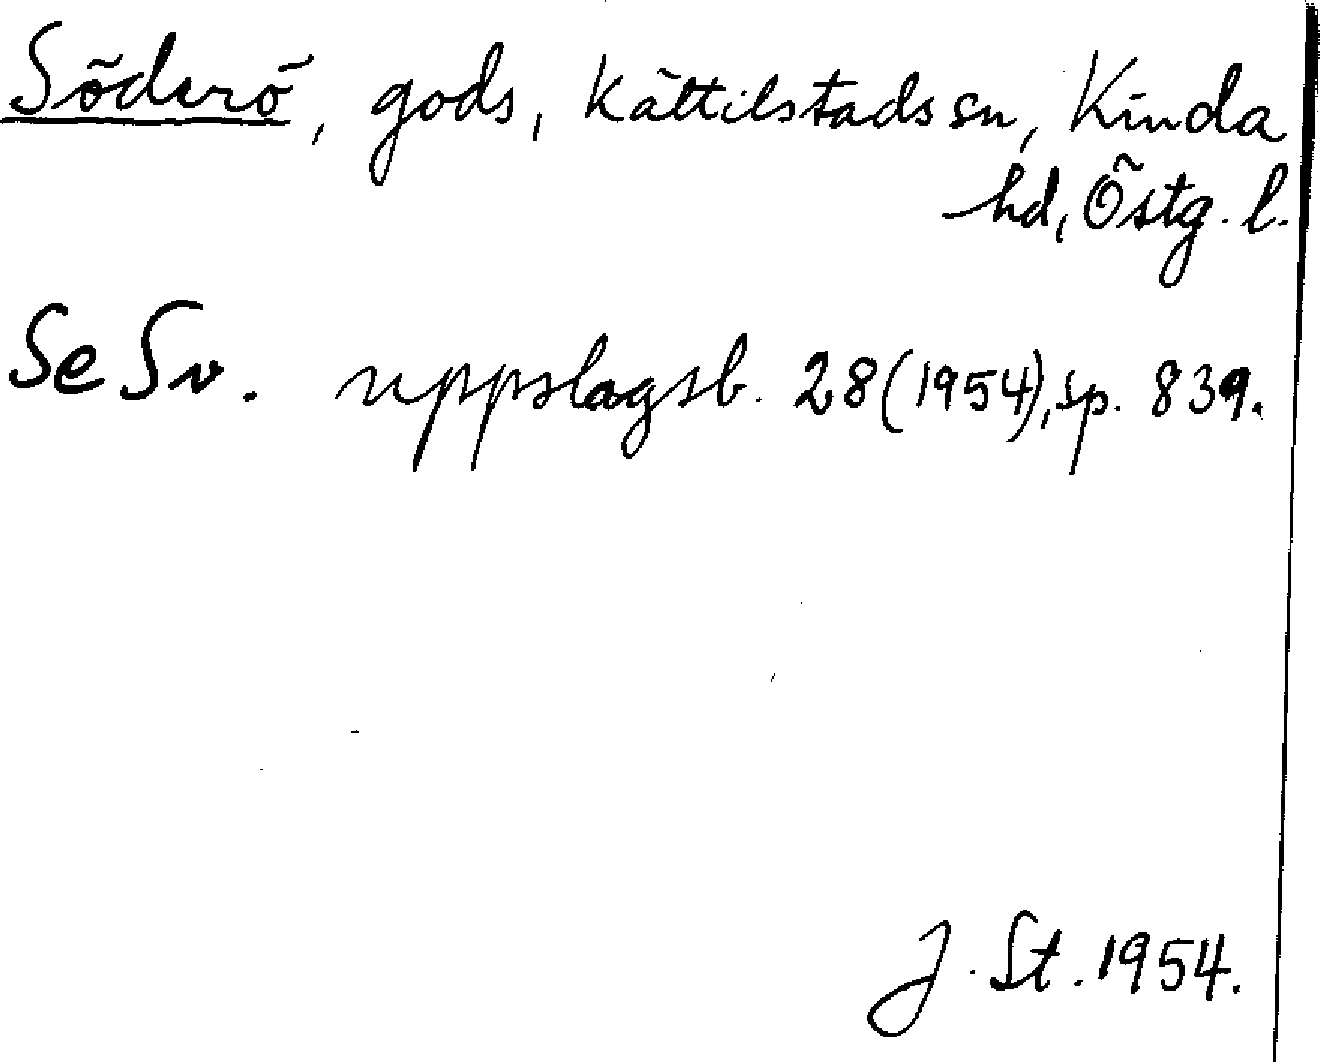 Söderö, gods, Kättilstads sn, Kinda
hd, Östg. l.
Se Sv. uppslagsb. 28 (1954), sp. 839.
J. St. 1954.